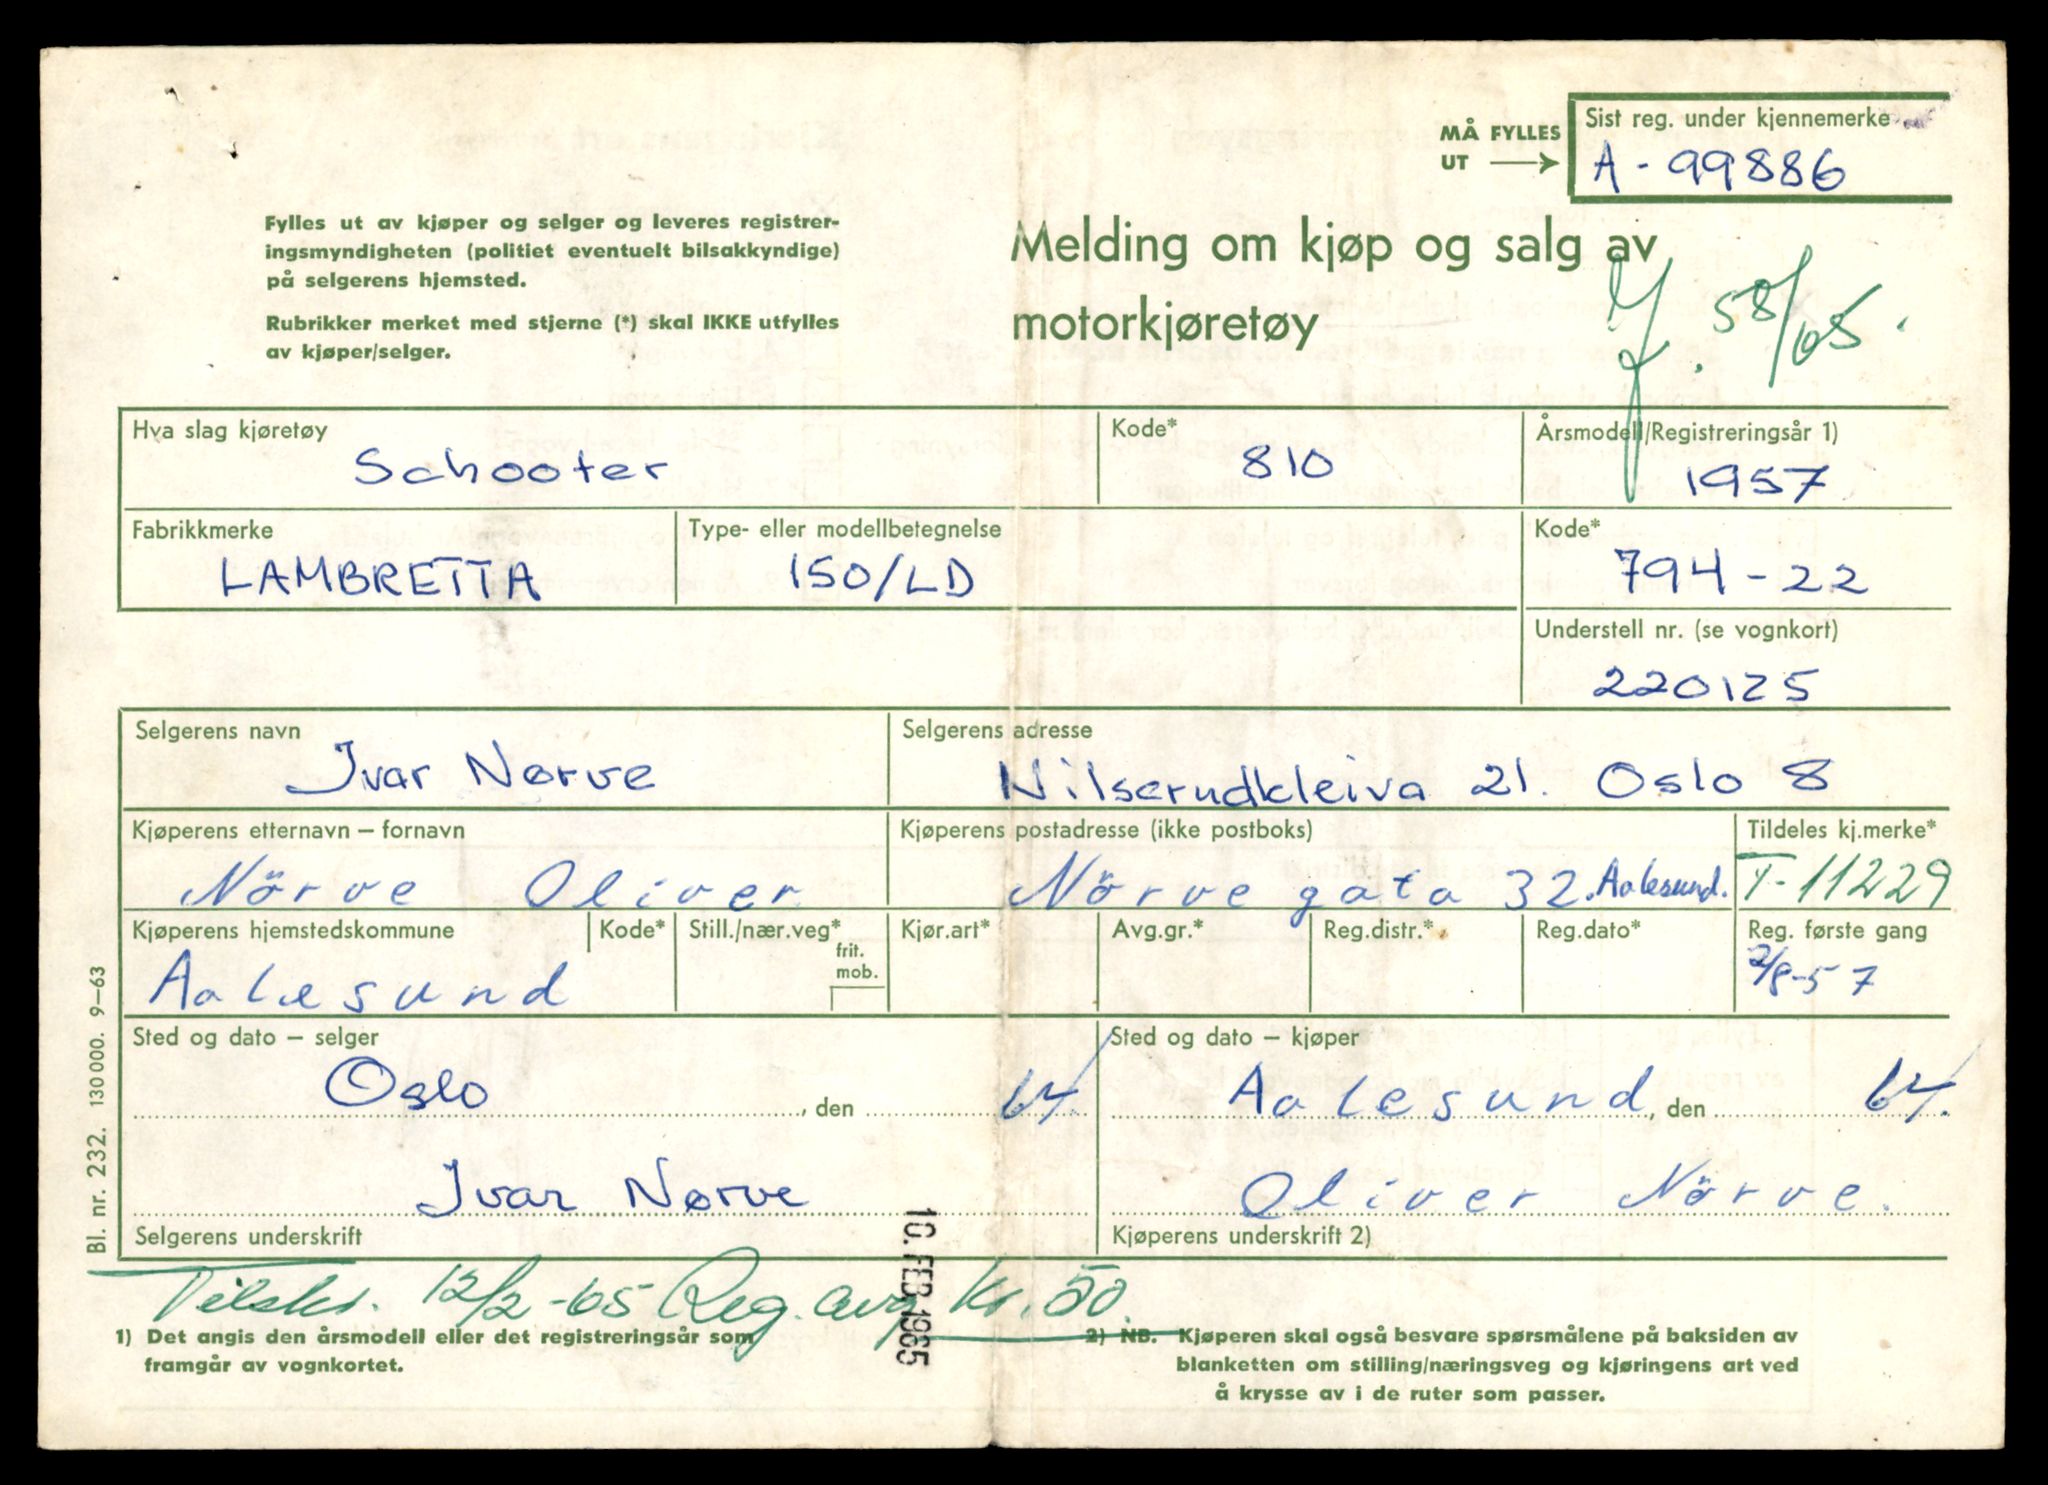 MÅ FYLLES
UT
Sist reg. under kjennemerke
A - 99886
Fylles ut av kjøper og selger og leveres registrer-
ingsmyndigheten (politiet eventuelt bilsakkyndige)
på selgerens hjemsted.
Rubrikker merket med stjerne (*) skal IKKE utfylles
av kjøper/selger.
Melding om kjøp og salg av
motorkjøretøy
58/65.
Hva slag kjøretøy
Schooter
Kode*
810
Årsmodell/Registreringsår 1)
1957
Fabrikkmerke
LAMBRETTA
Type- eller modellbetegnelse
150/LD
Kode*
794-22
Understell nr. (se vognkort)
220125
Selgerens navn
Ivar Nørve
Selgerens adresse
Nilserudkleiva 21. Oslo 8
Kjøperens etternavn – fornavn
Nörve Oliver
Kjøperens postadresse (ikke postboks)
Nörve gata 32. Aalesund.
Tildeles kj.merke*
T-11229
Kjøperens hjemstedskommune
Aalesund
Kode*
Still./nær.veg*
frit.
mob.
Kjør.art*
Avg.gr.*
Reg.distr.*
Reg.dato*
Reg. første gang
2/8-57
Sted og dato – selger
Oslo, den 64.
Ivar Nørve
Selgerens underskrift
Sted og dato – kjøper
Aalesund, den 64.
Oliver Nörve.
Kjøperens underskrift 2)
Bl. nr. 232. 130 000. 9–63
10. FEB 1965
Tilskr. 12/2-65 Reg. avg kr. 50.
1) Det angis den årsmodell eller det registreringsår som
framgår av vognkortet.
2) NB. Kjøperen skal også besvare spørsmålene på baksiden av
blanketten om stilling/næringsveg og kjøringens art ved
å krysse av i de ruter som passer.